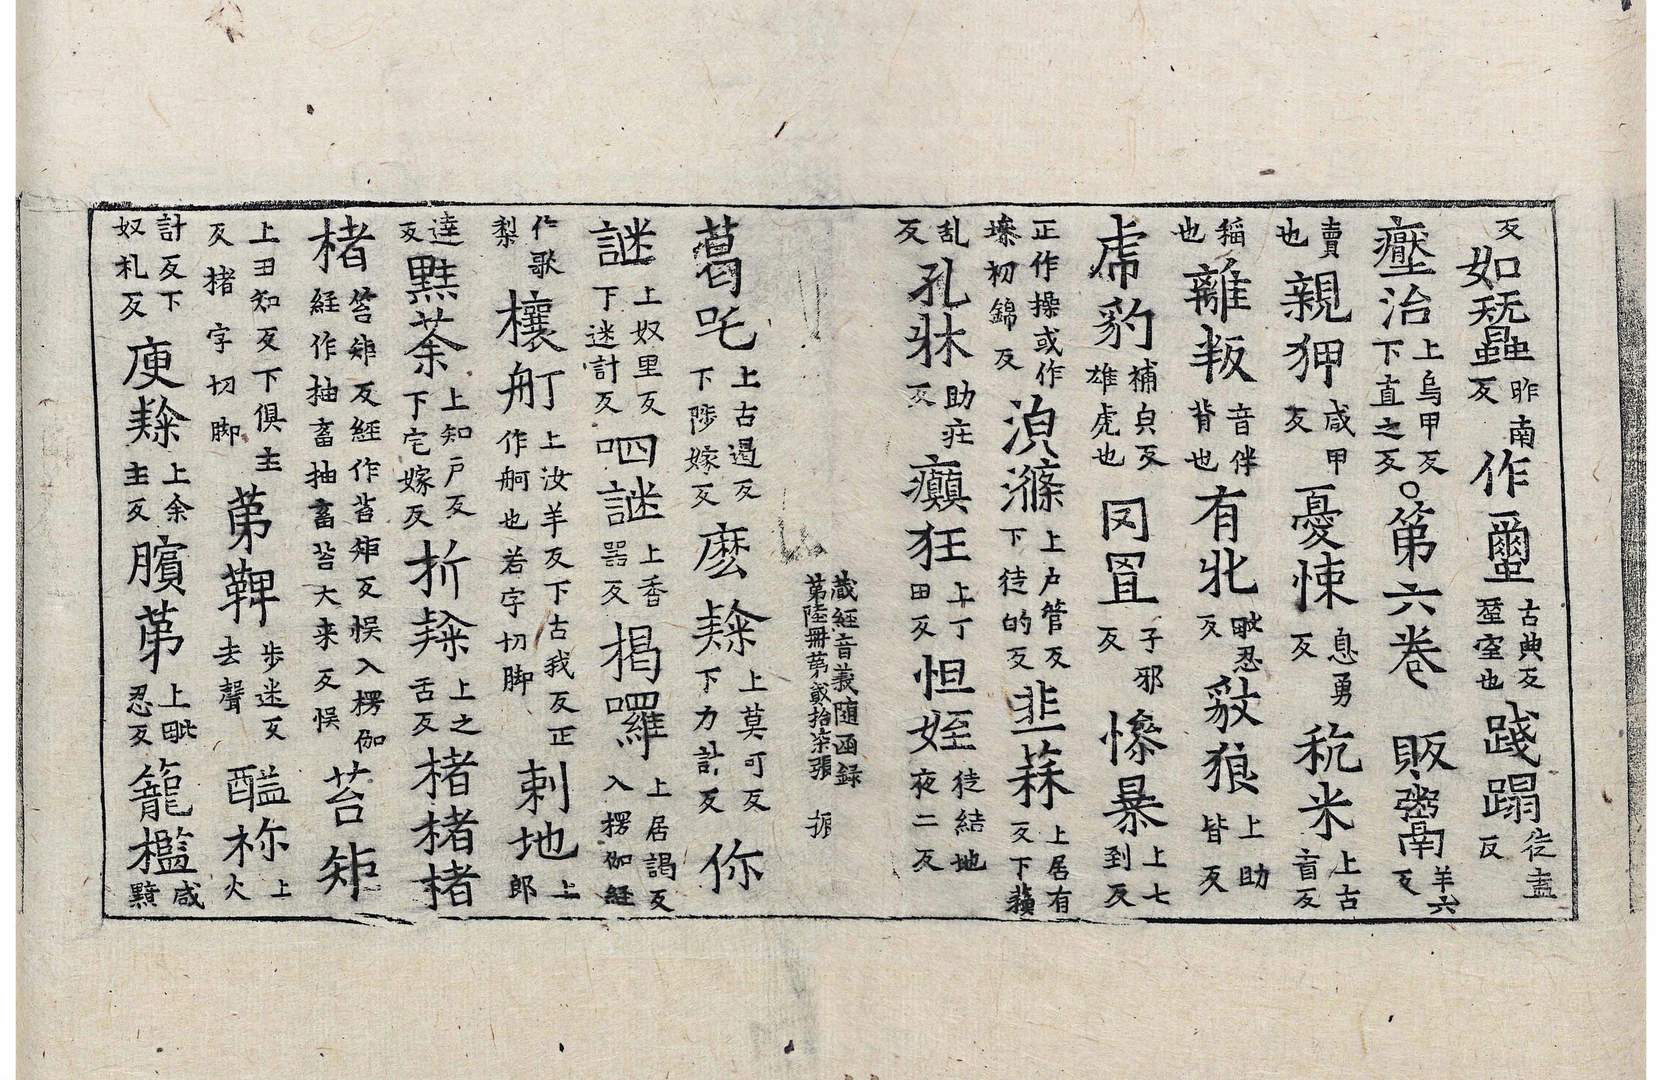 反如蝅昨南反作𡑞古典反蝅室也踐蹋徒盍反
壓治上烏甲反下直之反○第六卷販鬻羊六反
賣也親狎咸甲反憂悚息勇反秔米上古盲反
稲也離叛音伴背也有牝毗忍反豺狼上助皆反
虎豹補皃反雄虎也罔罝子邪反慘暴上七到反
正作操或作墋初錦反澒滌上户管反下徒的反韭䔉上居有反下蘓
乱反孔牀助疘反癲狂上丁田反怛姪徒結地夜二反
藏經音義随函録
第陸冊第貳拾柒張 振
葛吒上古遏反下陟嫁反麽隸上莫可反下力計反你
謎上奴里反下迷計反呬謎上香噐反揭囉上居謁反入楞伽経
作歌梨欀舸上汝羊反下古我反正作舸也若字切脚剌地上郎
達反䵣茶上知户反下宅嫁反折隸上之舌反楮楮楮
楮笞矩反経作㫺矩反悮入楞伽経作抽畜抽畜苔大来反悮苔矩
上丑知反下俱主反楮字切脚第鞞歩迷反去聲醯祢上火
計反下奴札反庾隸上余主反臏第上毗忍反籠檻咸黤